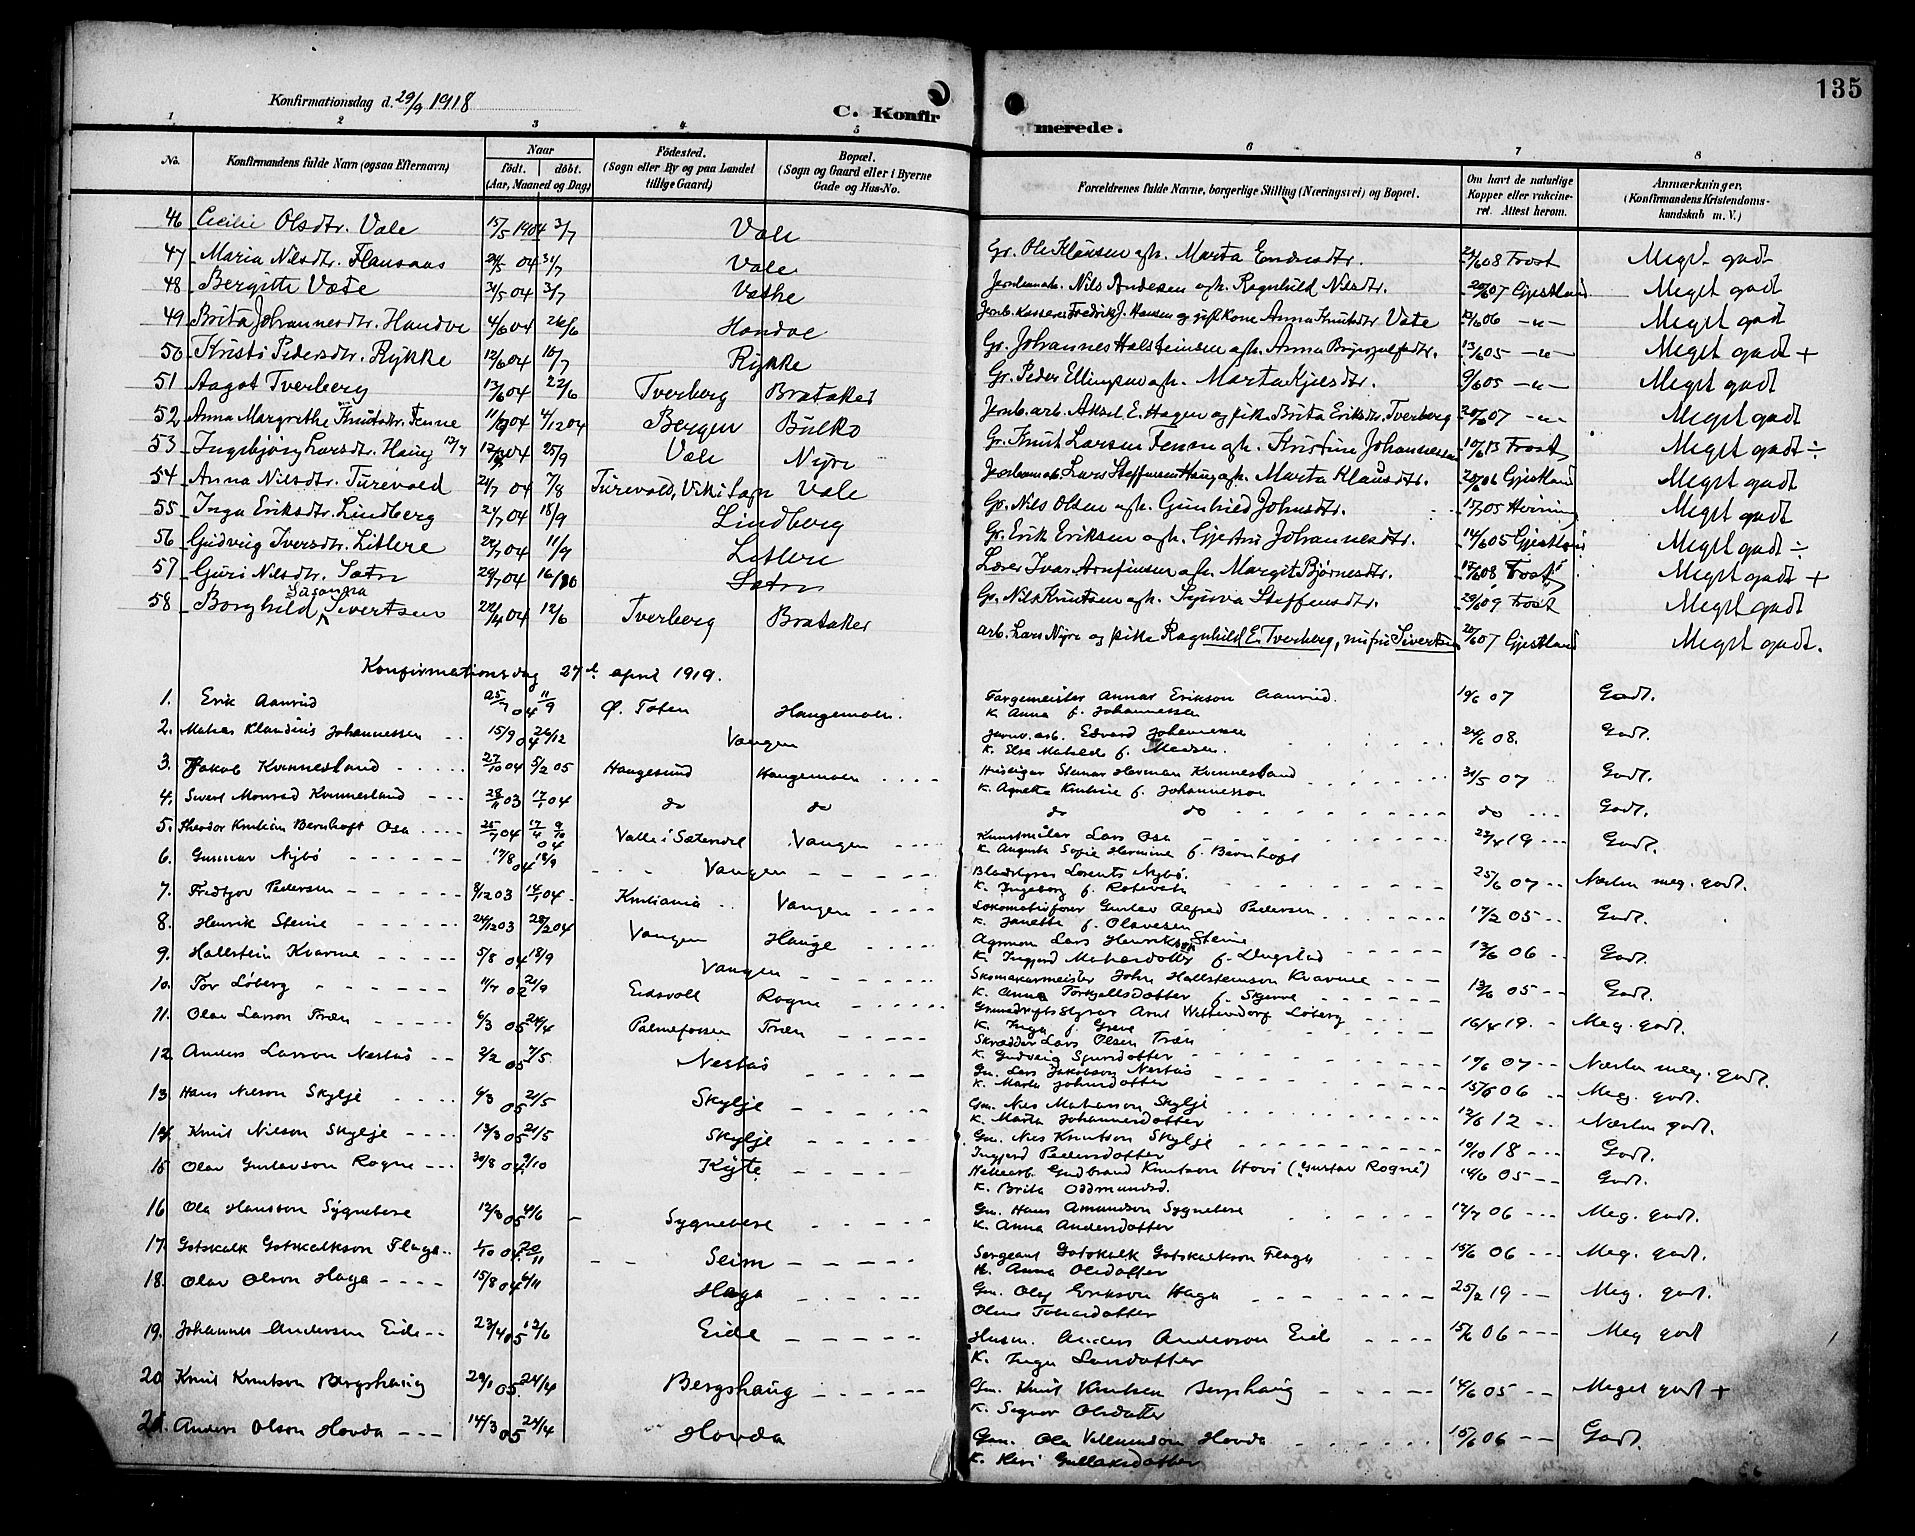 135
Konfirmationsdag d. 29/9 1918
C. Konfirmerede.
1 2 3 4 5 6 7 8
No.
Konfirmandens fulde Navn (ogsaa Efternavn)
Naar
født. døbt.
(Aar, Maaned og Dag)
Fødested.
(Sogn eller By og paa Landet
tillige Gaard)
Bopæl.
(Sogn og Gaard eller i Byerne
Gade og Hus-No.
Forældrenes fulde Navne, borgerlige Stilling (Næringsvei) og Bopæl.
Om havt de naturlige
Kopper eller vakcine-
ret. Attest herom.
Anmærkninger.
(Konfirmandens Kristendoms-
kundskab m. V.)
46 Cecilie Olsdtr. Væte 15/5 1904 3/7 Væte Gr. Ole Klausen og h. Marta Endresdtr. 08 Frost Meget godt
47 Maria Nilsdtr. Flansaas 04 31/7 Væte Jernbanearb. Nils Andersen og h. Ragnhild Nilsdtr. 07 Gjestland Meget godt
48 Bergitte Væte 31/5 04 3/7 Væthe Jernb. Kasserer Fredrik J. Hansen og gift Kone Anna Knutsdtr Væte 06 -"- Meget godt
49 Brita Johannesdtr. Handve 4/6 04 26/6 Handve Gr. Johannes Halsteinsen og h. Anna Brynjulfsdtr. 13/6 05 -"- Meget godt +
50 Kristi Pedersdtr. Rykke 12/6 04 10/7 Rykke Gr. Peder Ellingsen og h. Marta Kjelsdtr. 9/6 05 -"- Meget godt
51 Aagot Tverberg 13/6 04 22/6 Tverberg Brataker Jernb. arb. Aksel E. Hagen og pike Brita Eriksdtr. Tverberg 20/6 07 -"- Meget godt
52 Anna Margrethe Knutsdtr. Fenne 11/9 04 4/12 04 Bergen Bulko Gr. Knut Larsen Fenne og h. Kristine Johannesdtr 10/6 13 Frost Meget godt ÷
53 Ingebjørg Larsdtr. Haug 12/7 04 25/9 Væte Nyre Jernbanearb. Lars Steffensen Haug og h. Marta Klausdtr. 20/6 06 Gjestland Meget godt
54 Anna Nilsdtr. Turevold 21/7 04 7/8 Turevold, Vik i Sogn Væte Gr. Nils Olsen og h. Gunhild Johnsdtr. 05 Meget godt
55 Inga Eriksdtr. Lindberg 24/7 04 18/9 Lindberg Gr. Erik Eriksen og h. Gjertrud Johannesdtr. 14/6 05 Gjestland Meget godt ÷
56 Gudveig Iversdtr. Litlere 04 11/9 Litlere Lærer Ivar Arnfinsen og h. Margit Bjørnesdtr. 08 Frost Meget godt +
57 Guri Nilsdtr. Sætre 29/7 04 16/10 Sætre Gr. Nils Knutsen og h. Synva Steffensdtr. 29/6 09 Frost Meget godt
58 Borghild Susanna Sivertsen 22/4 04 12/6 Tverberg Brataker arb. Lars Nyre og pike Ragnhild E. Tverberg, nu fru Sivertsen 20/6 07 Gjestland Meget godt.
Konfirmationsdag 27d april 1919.
1. Erik Aanrud 25/7 04 11/9 Ø. Toten Haugemoen. Fargemeister Annar Erikson Aanrud. 19/6 07 Godt.
K. Anna f. Johannessen
2. Matias Klaudius Johannessen 15/9 04 26/12 Vangen Jernv. arb. Edvard Johannessen 24/6 08. Godt.
K. Else Matilde f. Madsen.
3. Jakob Kvinnesland 27/10 04 5/2 05 Haugesund Haugemoen Huseigar Steinar Herman Kvinnesland 31/5 07 Godt.
K. Agnetha Kristine f. Johannessen
4. Sivert Monrad Kvinnesland 28/11 03 17/1 04 do do do do do Godt.
5. Theodor Kristian Bernhoft Osa 25/7 04 17/4 9/10 04 Valle i Sætersdal Vangen Kunstmåler Lars Osa 23/4 19 Godt.
K. Augusta Sofie Hermine f. Bernhoft
6. Gunnar Nybø 17/8 04 18/9 Vangen Bladstyrar Lorents Nybø. 25/6 07 Næsten meg. godt.
K. Ingeborg f. Rotevatn
7. Fridtjov Pedersen 8/12 03 14/1 04 Kristiania Vangen Lokomotivførar Gustav Alfred Pedersen 17/2 05 Godt.
K. Janette f. Olavesen
8. Henrik Steine 24/12 03 28/2 04 Vangen Hauge Agronom Lars Henrikson Steine 13/6 06 Godt.
K. Ingjerd Matiasdotter f. Dugstad
9. Hallstein Kvarme 5/8 04 18/9 Vangen Skomakarmeister John Hallsteinson Kvarme 13/6 05 Godt.
K. Anna Torkjellsdotter f. Skjerve
10. Tor Løberg 11/7 02 21/9 Eidsvoll Rogne Grunndriftsstyrar Arnt Wittendorf Løberg 16/4 19. Meg. godt.
K. Inga f. Greve
11. Olav Larson Træn 6/3 05 24/4 Palmafossen Træn Skrædder Lars Olsen Træn 19/6 07 Næsten meg. godt.
K. Gudveig Sjursdotter
12 Anders Larson Nestås 2/2 05 7/5. Nestås Gm. Lars Jakobson Nestås 15/6 06 Meg. godt.
K. Marta Johnsdotter
13 Hans Nilson Skylje 6/3 05 21/5 Skylje Gm. Nils Matiasson Skylje 13/6 12 Næsten godt.
K. Marta Johannesdotter
14 Knut Nilson Skylje 13/3 05 21/5 Skylje Gm. Nils Knutson Skylje 19/10 18 Godt.
Ingjerd Pedersdotter
15 Olav Gustavson Rogne 30/8 04 9/10 Kyte Nettoarb. Gudbrand Knutson Hovi (Gustav Rogne) 14/6 05 Godt.
K. Brita Oddmundsd.
16 Ola Hansson Sygnebere 12/3 05 4/6 Sygnebere Gm. Hans Amundson Sygnebere 17/7 06 Meg. godt.
K. Anna Andersdotter
17. Gotskalk Gotskalkson Flage 1/10 04 20/11 Seim Sergeant Gotskalk Gotskalkson Flage 15/6 06 Meg. godt.
K. Anna Olsdotter
18. Olav Olson Haga 15/8 04 6/11 Haga Gm. Olaf Erikson Haga 25/2 19 Meg. godt.
Oline Tomasdotter
19. Johannes Andersen Eide 23/4 05 12/6 Eide Husm. Anders Anderson Eide 15/6 06 Meg godt
K. Inga Larsdotter
20 Knut Knutson Bergshaug 29/1 05. 24/4 Bergshaug Gm. Knut Knutsen Bergshaug 14/6 05 Meget godt +
K. Signer Olsdotter
21. Anders Olson Hovda 14/3 05 24/4 Hovda Gm. Ola Villumson Hovda 15/6 06 Godt.
K. Kari Gullaksdotter